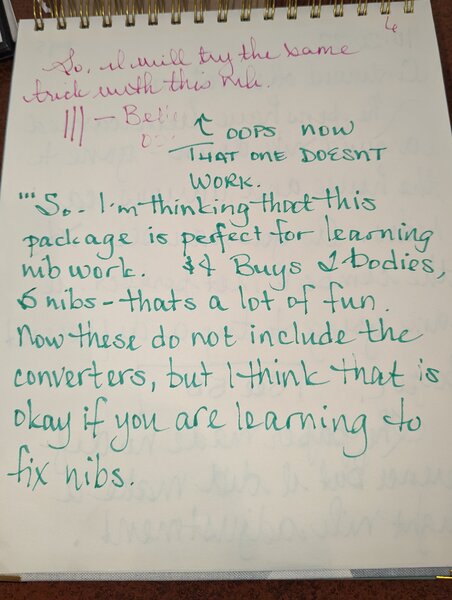 So, I will try the same
trick with this nib.
||| - Bet
↑ OOPS NOW
THAT ONE DOESNT
WORK.
"'So.. I'm thinking that this
package is perfect for learning
nib work. $4 Buys 2 bodies,
6 nibs - thats a lot of fun.
Now these do not include the
converters, but I think that is
okay if you are learning to
fix nibs.